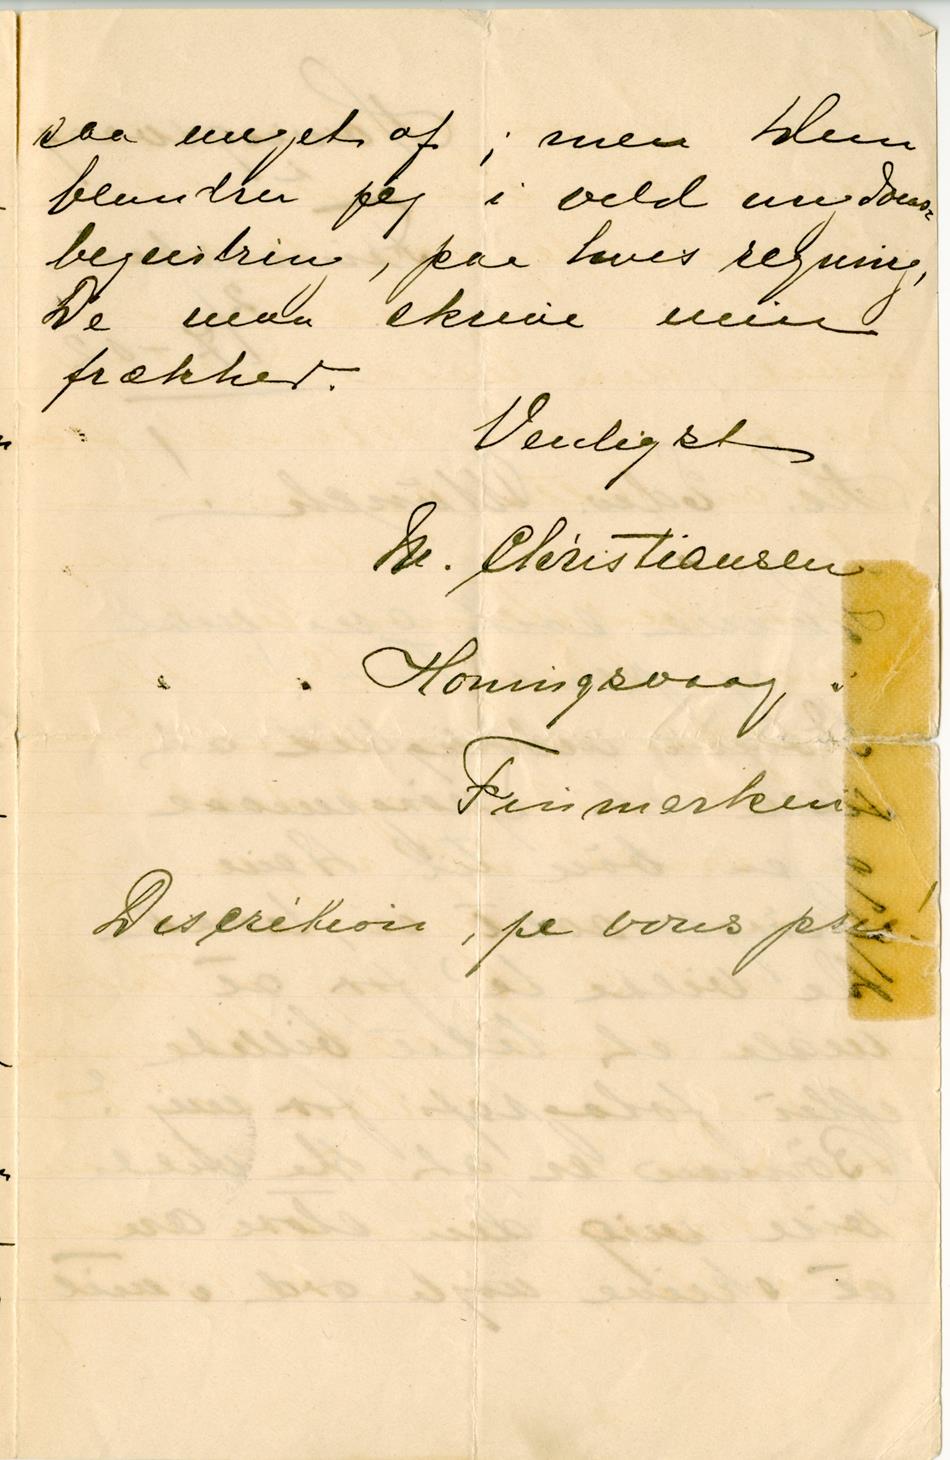 saa meget af ; men Dem
beundrer jeg i vild ungdoms-
begeistring, paa hvis regning,
De maa skrive min
frækhed.
Venligst
M. Christiansen
Honingsvaag.
Finmarken
Discretion, je vous prie!